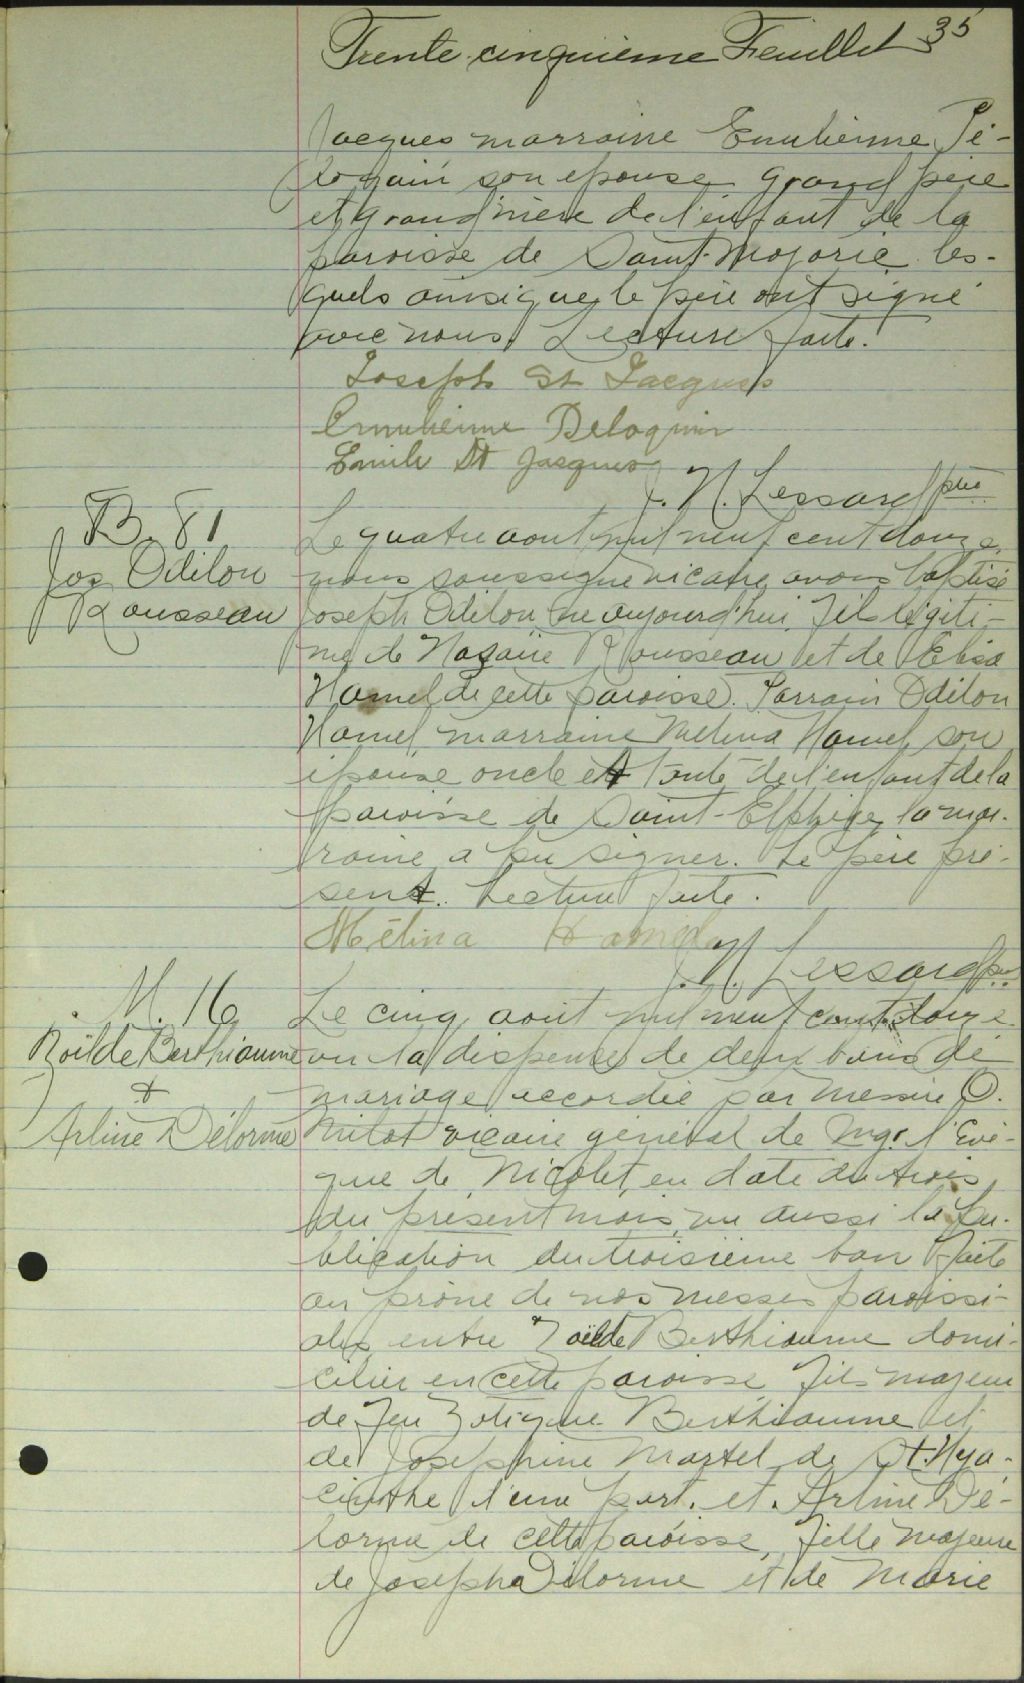 Trente-cinquième Feuillet 35
Jacques marraine Emulienne Pé-
loquin son épouse grand père
et grand'mère de l'enfant de la
paroisse de Saint-Majoric les-
quels ainsi que le père ont signé
avec nous. Lecture faite.
Joseph St Jacques
Emulienne Deloquin
Emile St Jacques
J. N. Lessard ptre
B. 81
Jos Odilon
Rousseau
Le quatre aout mil neuf cent douze
nous soussigné vicaire avons baptisé
Joseph Odilon né aujourd'hui, fils légiti-
me de Nazaire Rousseau et de Elisa
Hamel de cette paroisse. Parrain Odilon
Hamel, marraine Melina Hamel, son
épouse oncle et tante de l'enfant de la
paroisse de Saint-Elphège, la mar-
raine a pu signer. Le père pré-
sent. Lecture faite.
Mélina Hamel
J. N. Lessard ptre
M. 16
Zoïlde Berthiaume
&
Arline Délorme
Le cinq aout mil neuf cent douze
vu la dispense de deux bans de
mariage accordée par Messire O.
Milot vicaire général de Mgr. l'Evê-
que de Nicolet, en date du trois
du présent mois, vu aussi la pu-
blication du troisième ban faite
au prône de nos messes paroissi-
ales, entre Zoïlde Berthiaume domi-
cilier en cette paroisse fils majeur
de feu Zotique Berthiaume et
de Josephine Martel de St. Hya-
cinthe d'une part. et. Arline Dé-
lorme de cette paroisse, fille majeure
de Joseph Délorme et de Marie